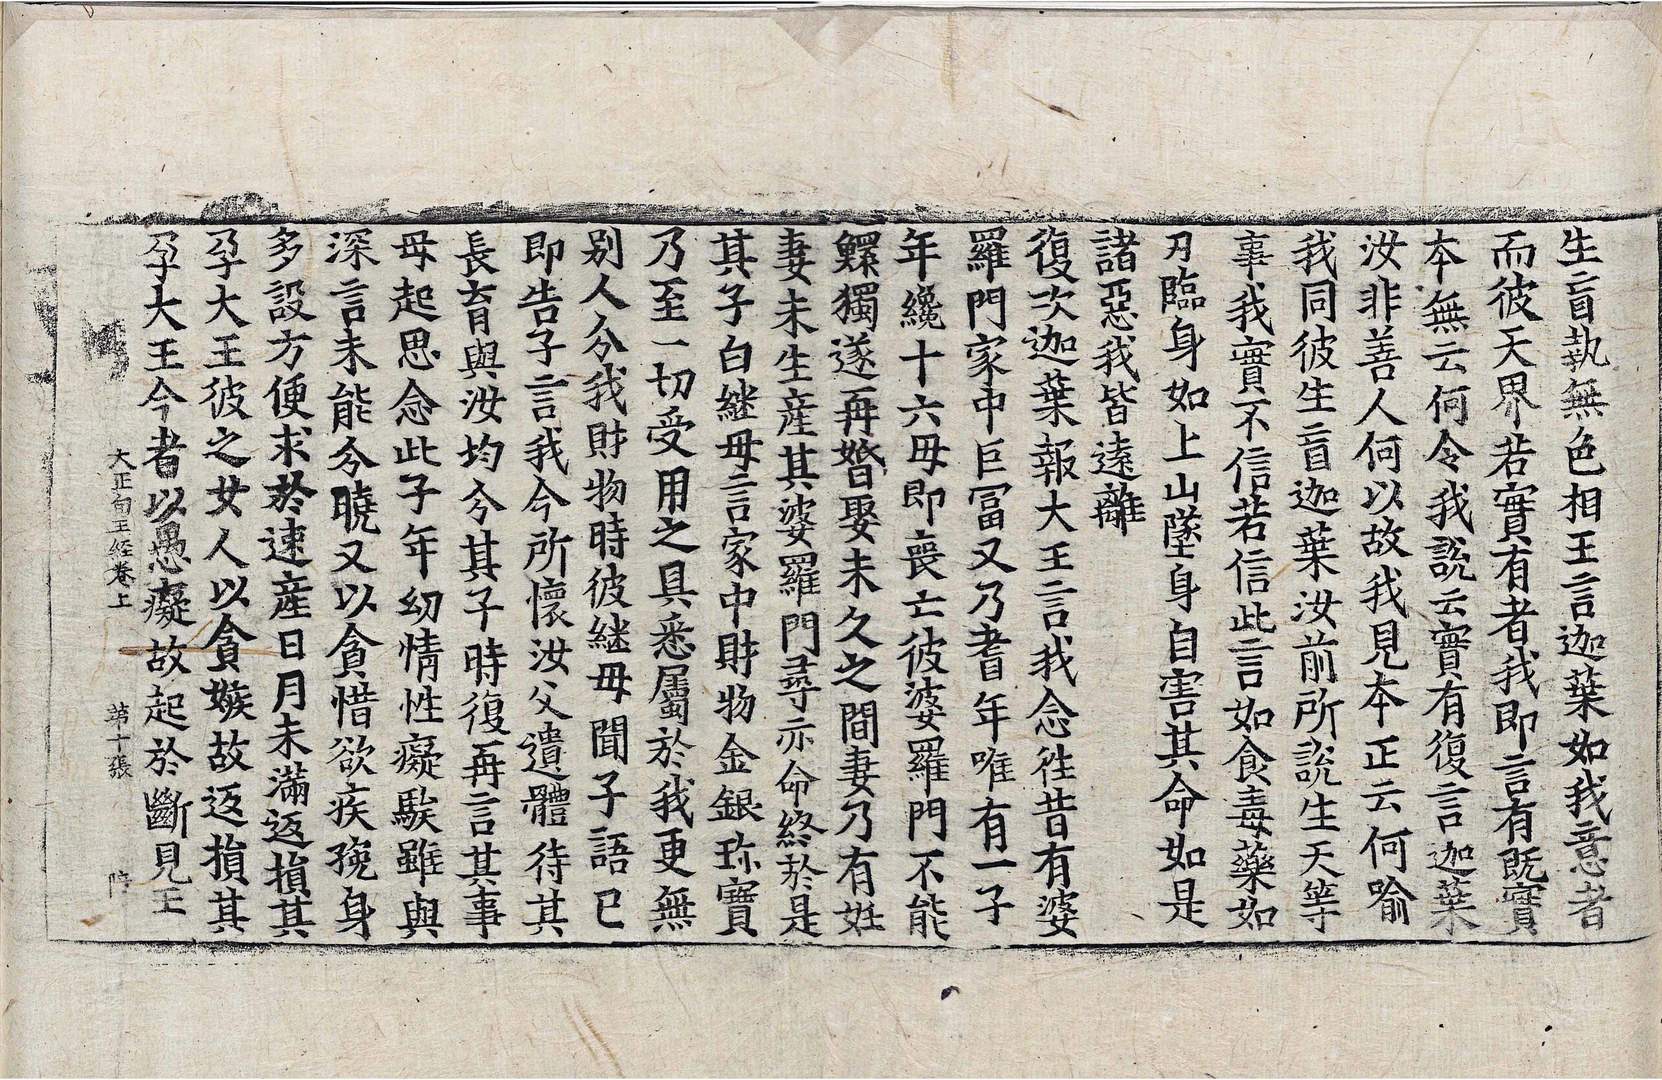 生盲執無色相王言迦葉如我意者
而彼天界若實有者我即言有既實
本無云何令我說云實有復言迦葉
汝非善人何以故我見本正云何喻
我同彼生盲迦葉汝前所說生天等
事我實不信若信此言如食毒藥如
刀臨身如上山墜身自害其命如是
諸惡我皆遠離
復次迦葉報大王言我念往昔有婆
羅門家中巨冨又乃耆年唯有一子
年纔十六母即喪亡彼婆羅門不能
鰥獨遂再婚娶未久之間妻乃有姙
妻未生産其婆羅門尋亦命終於是
其子白継母言家中財物金銀珎寶
乃至一切受用之具悉屬於我更無
别人分我財物時彼継母聞子語已
即告子言我今所懷汝父遺體待其
長育與汝均分其子時復再言其事
母起思念此子年幼情性癡騃雖與
深言未能令曉又以貪惜欲疾㝃身
多設方便求於速産日月未滿返損其
孕大王彼之女人以貪嫉故返損其
孕大王今者以愚癡故起於斷見王
大正句王経卷上 第十張